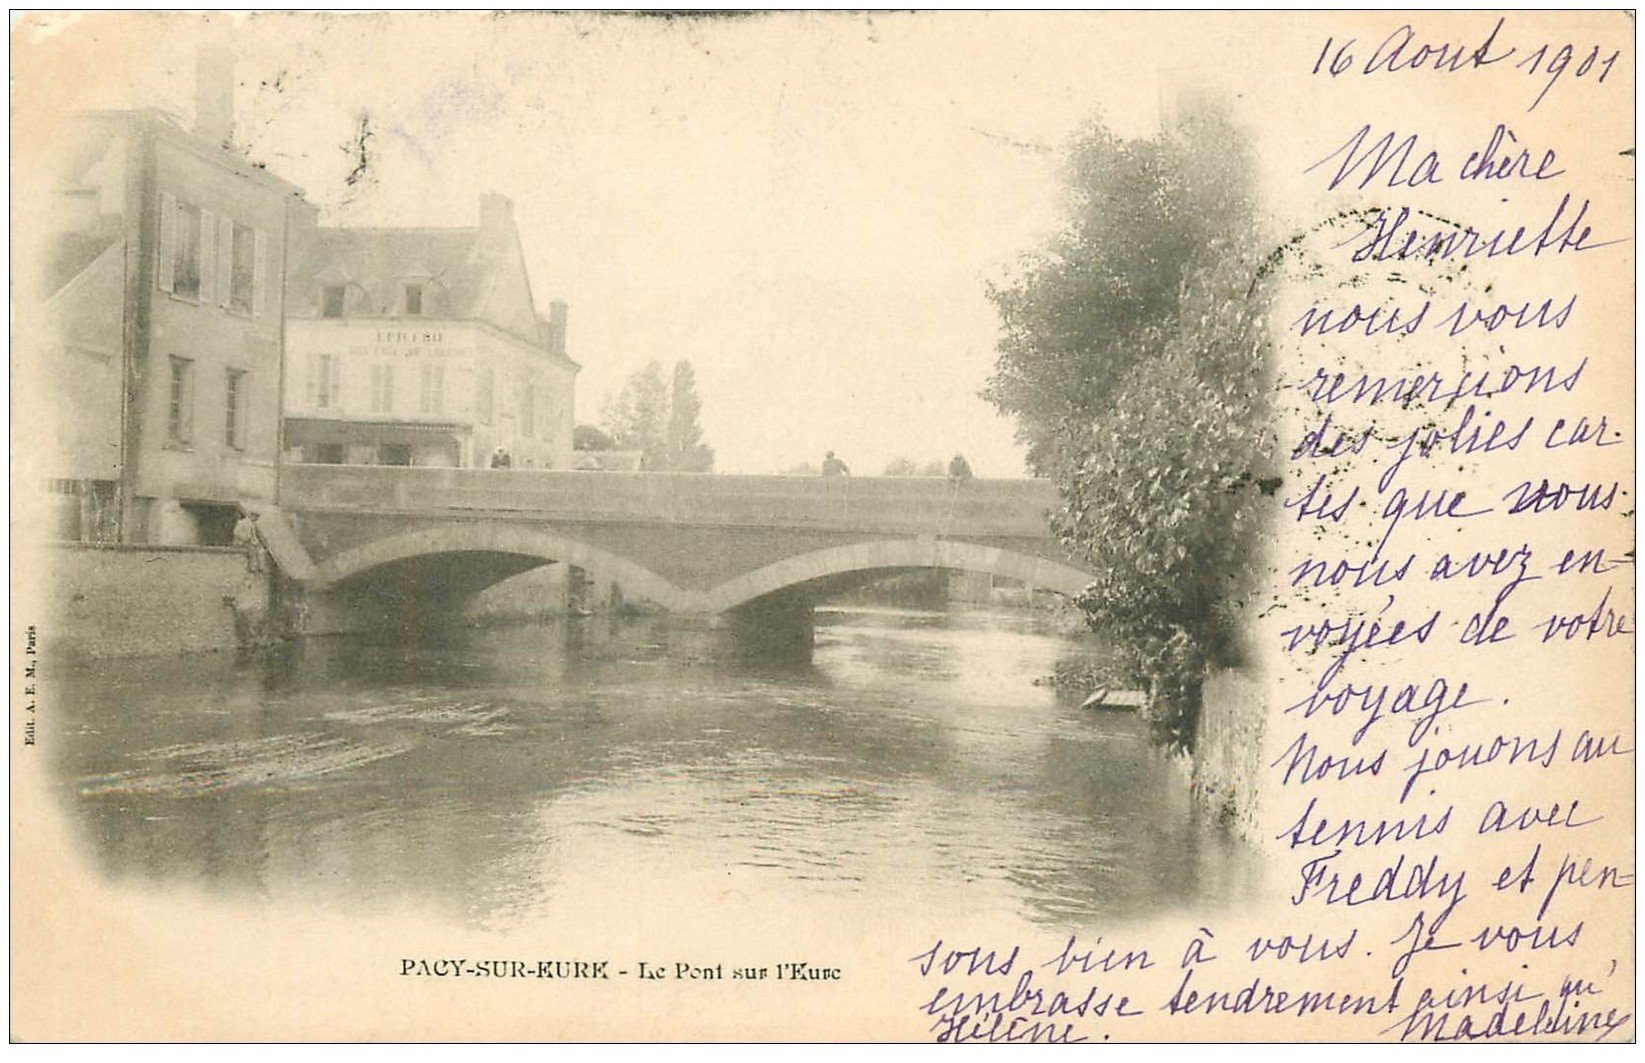 16 Aout 1901
Ma chère
Henriette
nous vous
remercions
des jolies car-
tes que vous
nous avez en-
voyées de votre
voyage.
Nous jouons au
tennis avec
Freddy et pen-
sons bien à vous. Je vous
embrasse tendrement ainsi qu'
Hélène.
Madeleine
EPICERIE
PACY-SUR-EURE - Le Pont sur l'Eure
Edit. A. E. M., Paris